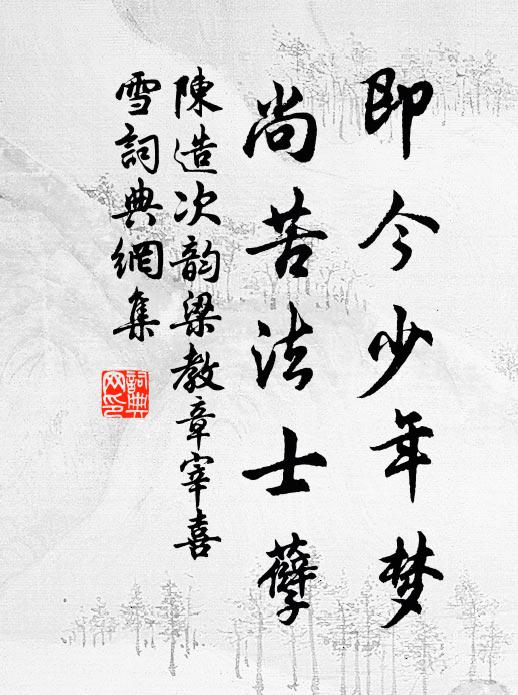 即今少年梦
尚苦法士孽
陳造次韵梁教章宰喜
雪詞典網集
詞典
网印